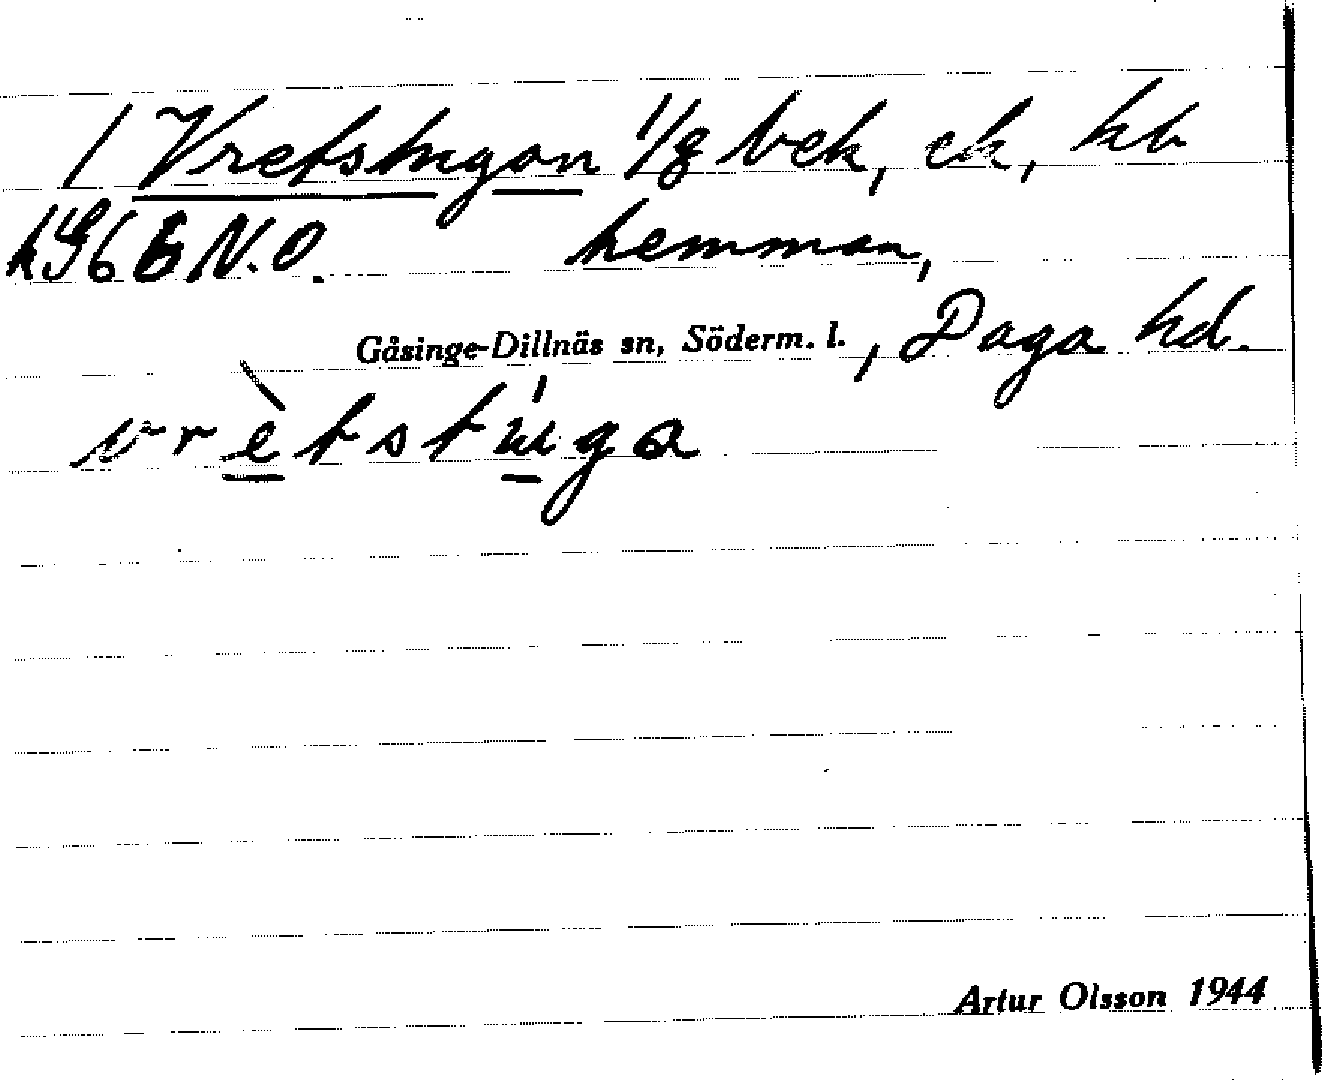 / Vretstugan 1/8 bek, ek, hb
hemman,
Gåsinge-Dillnäs sn, Söderm. l., Daga hd.
vrètstúga
Artur Olsson 1944